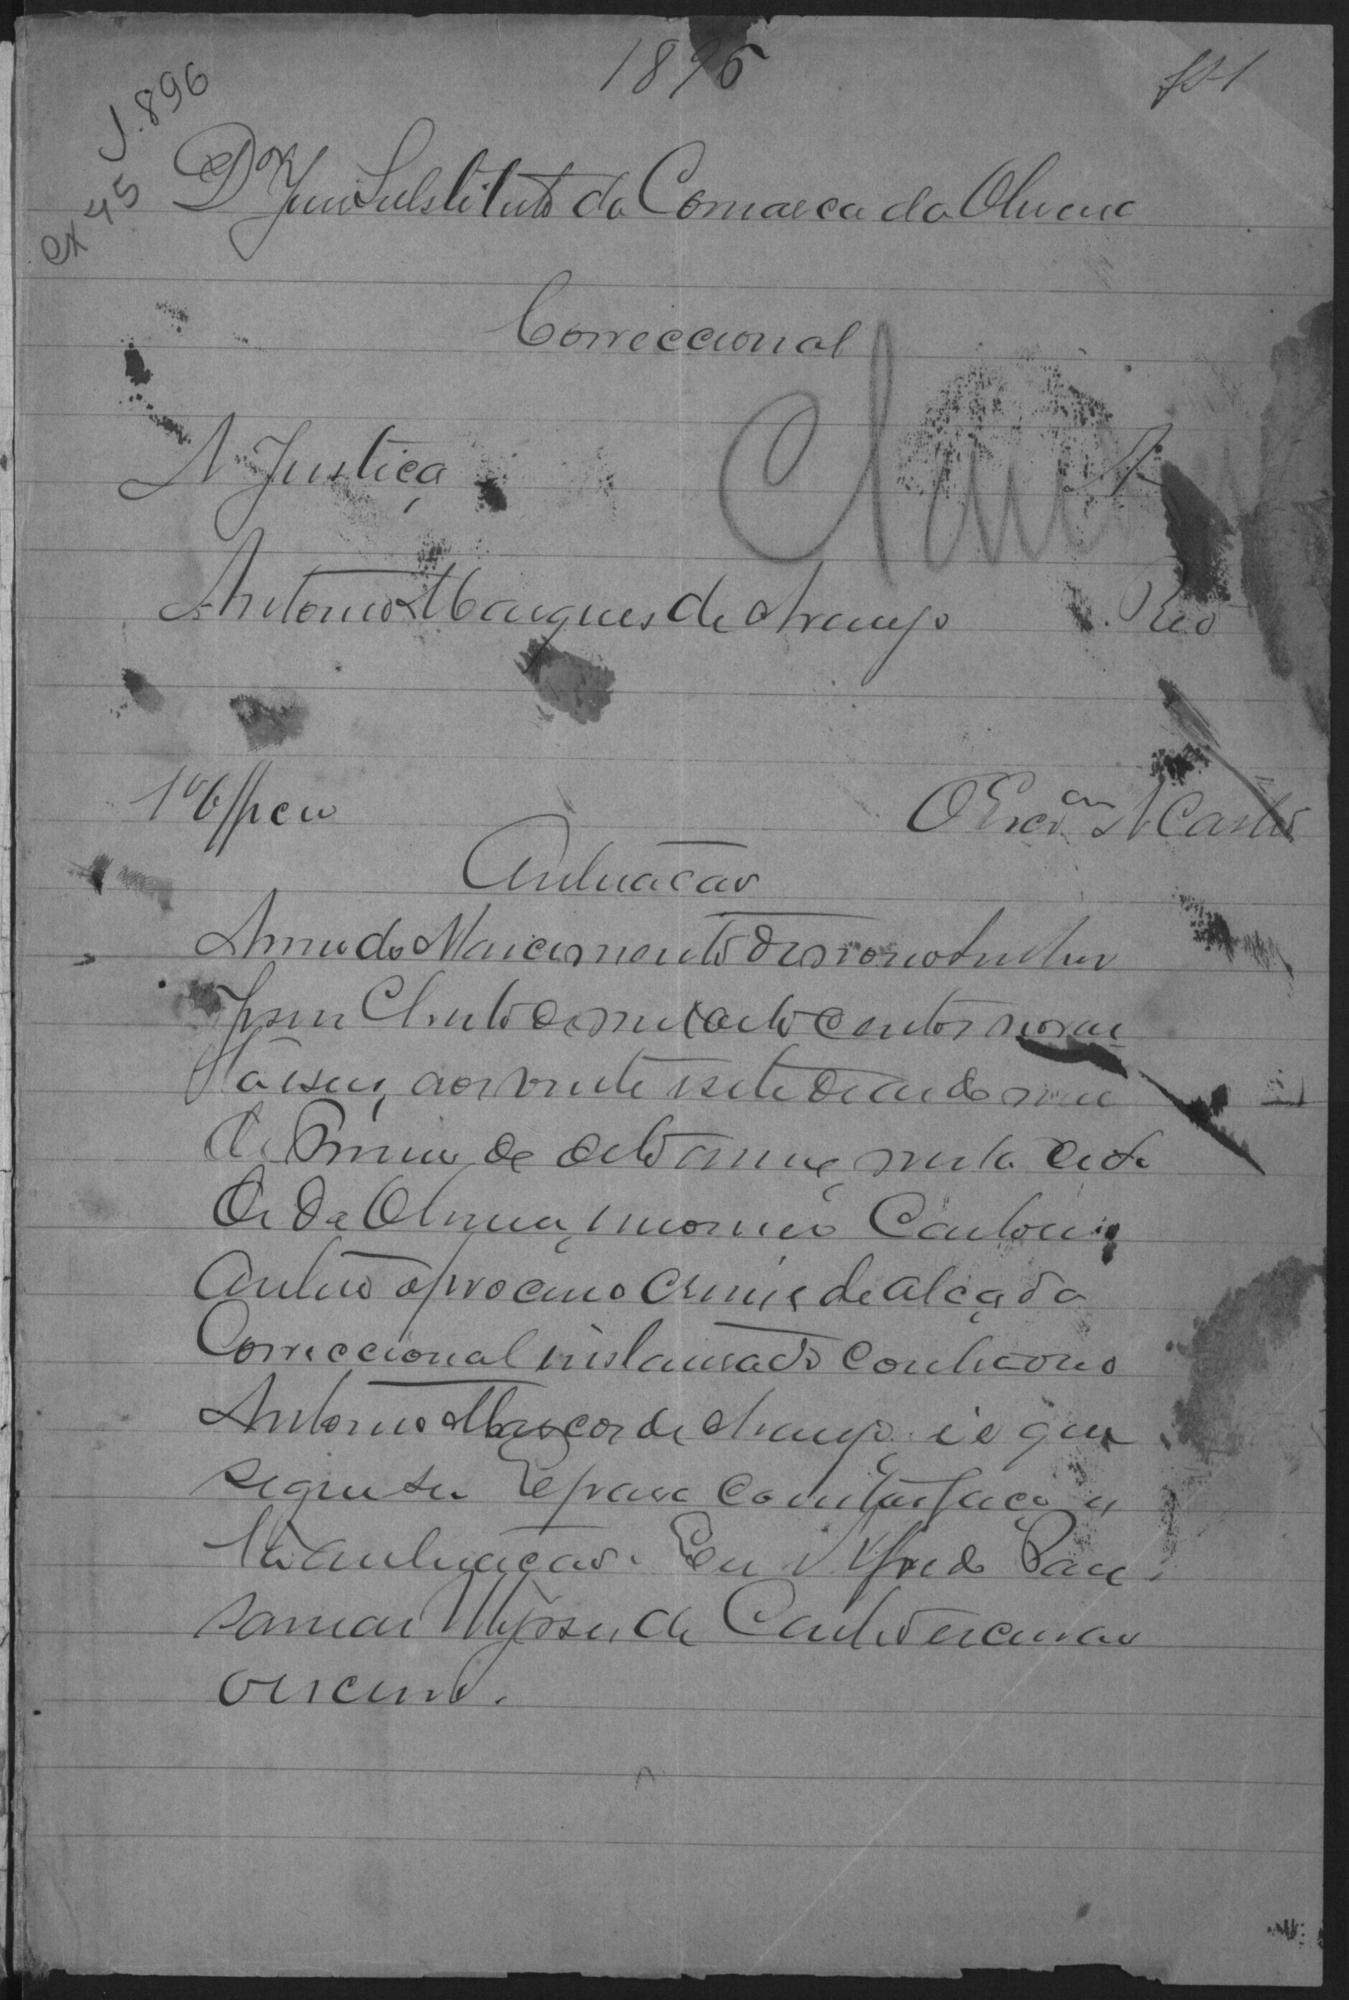 1896
fl 1
J. 896
cx 45
Dor Juiz Substituto da Comarca da
Correccional
A Justiça A
Antonio Marques de Araujo Reo
1º Officio O Escram A Castro
Autuacão
Anno do Nascimento de Nosso Senhor
Jesus Christo de mil oito centos noven
ta e seis, aos vinte e sete dias do mez
de de dito anno, nesta cida
de da em meo Cartorio,
autuo o processo crime de alçada
Correccional instaurado contra o reo
Antonio Marcos de Araujo, e é o que
segue se. E para constar faço es
ta autuacão. Eu Alfredo
de Castro escrivão
o escrevi.